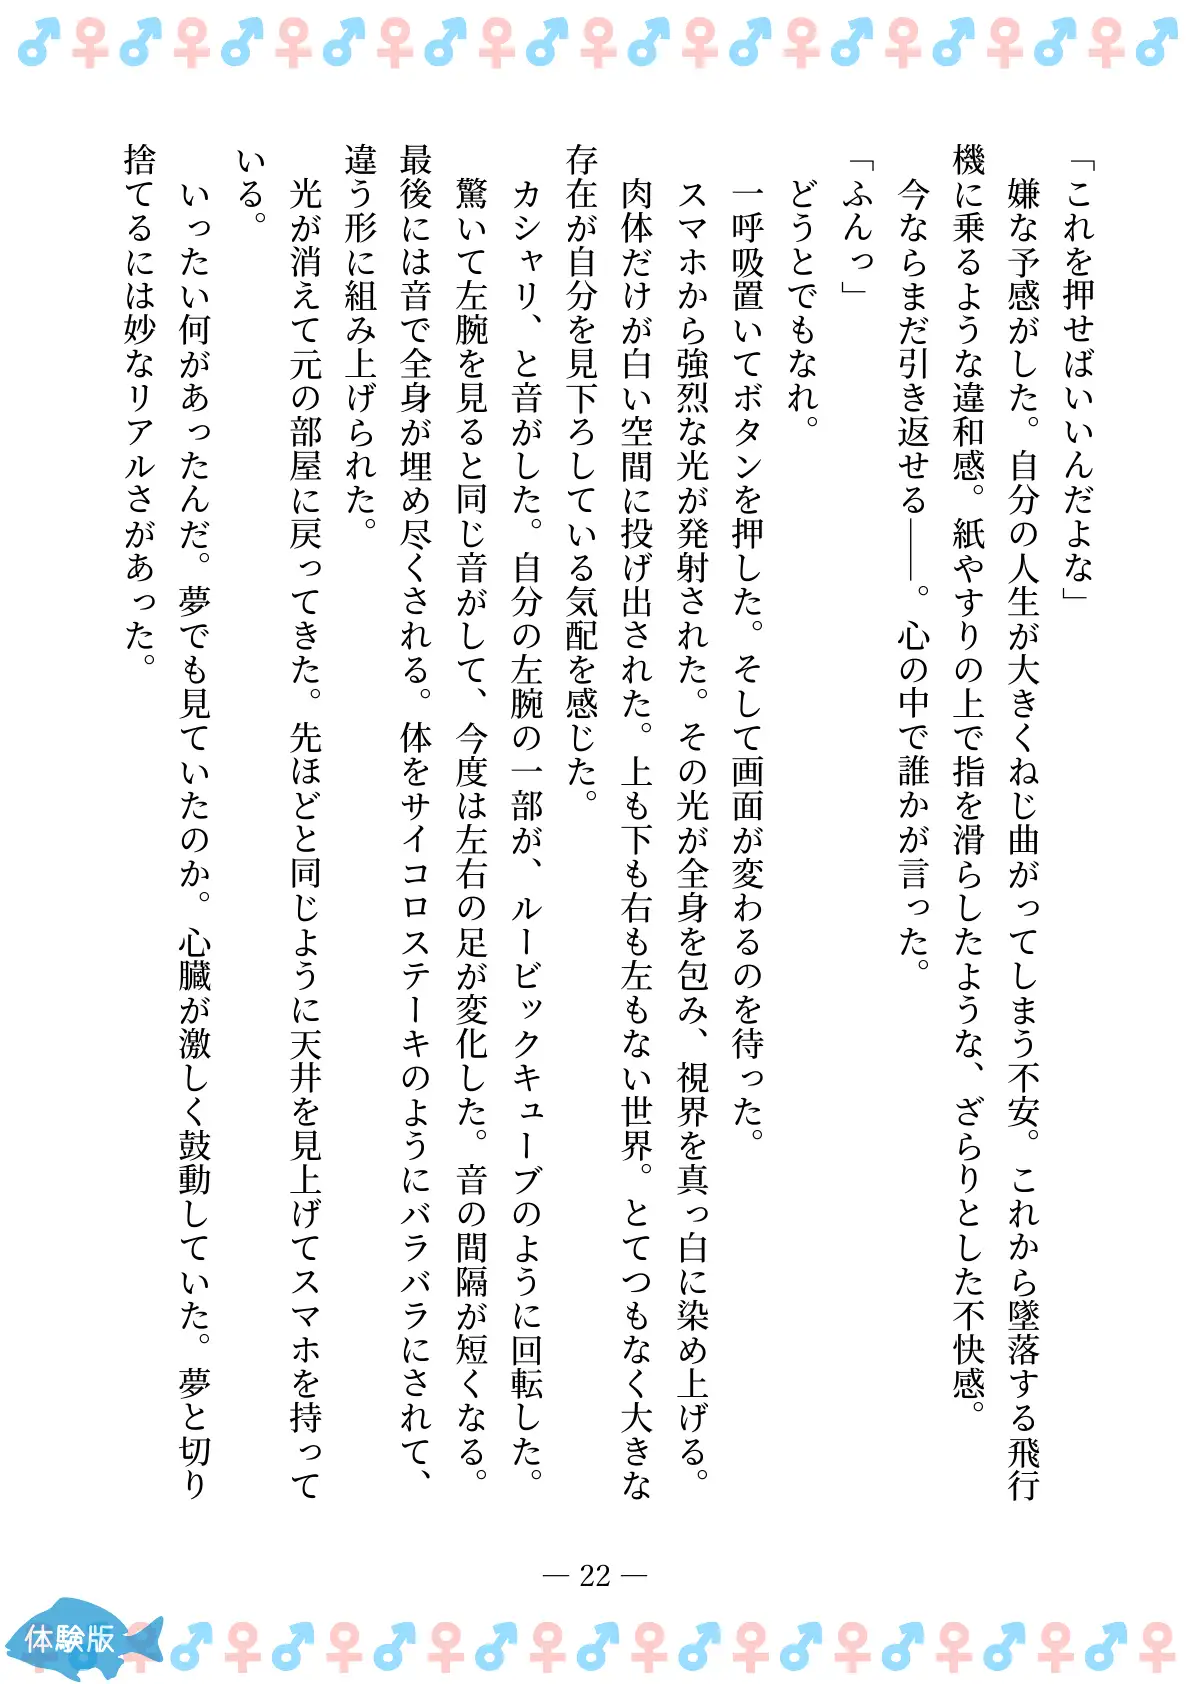 「これを押せばいいんだよな」
　嫌な予感がした。自分の人生が大きくねじ曲がってしまう不安。これから墜落する飛行
機に乗るような違和感。紙やすりの上で指を滑らしたような、ざらりとした不快感。
　今ならまだ引き返せる――。心の中で誰かが言った。
「ふんっ」
　どうとでもなれ。
　一呼吸置いてボタンを押した。そして画面が変わるのを待った。
　スマホから強烈な光が発射された。その光が全身を包み、視界を真っ白に染め上げる。
　肉体だけが白い空間に投げ出された。上も下も右も左もない世界。とてつもなく大きな
存在が自分を見下ろしている気配を感じた。
　カシャリ、と音がした。自分の左腕の一部が、ルービックキューブのように回転した。
　驚いて左腕を見ると同じ音がして、今度は左右の足が変化した。音の間隔が短くなる。
最後には音で全身が埋め尽くされる。体をサイコロステーキのようにバラバラにされて、
違う形に組み上げられた。
　光が消えて元の部屋に戻ってきた。先ほどと同じように天井を見上げてスマホを持って
いる。
　いったい何があったんだ。夢でも見ていたのか。心臓が激しく鼓動していた。夢と切り
捨てるには妙なリアルさがあった。
— 22 —
体験版